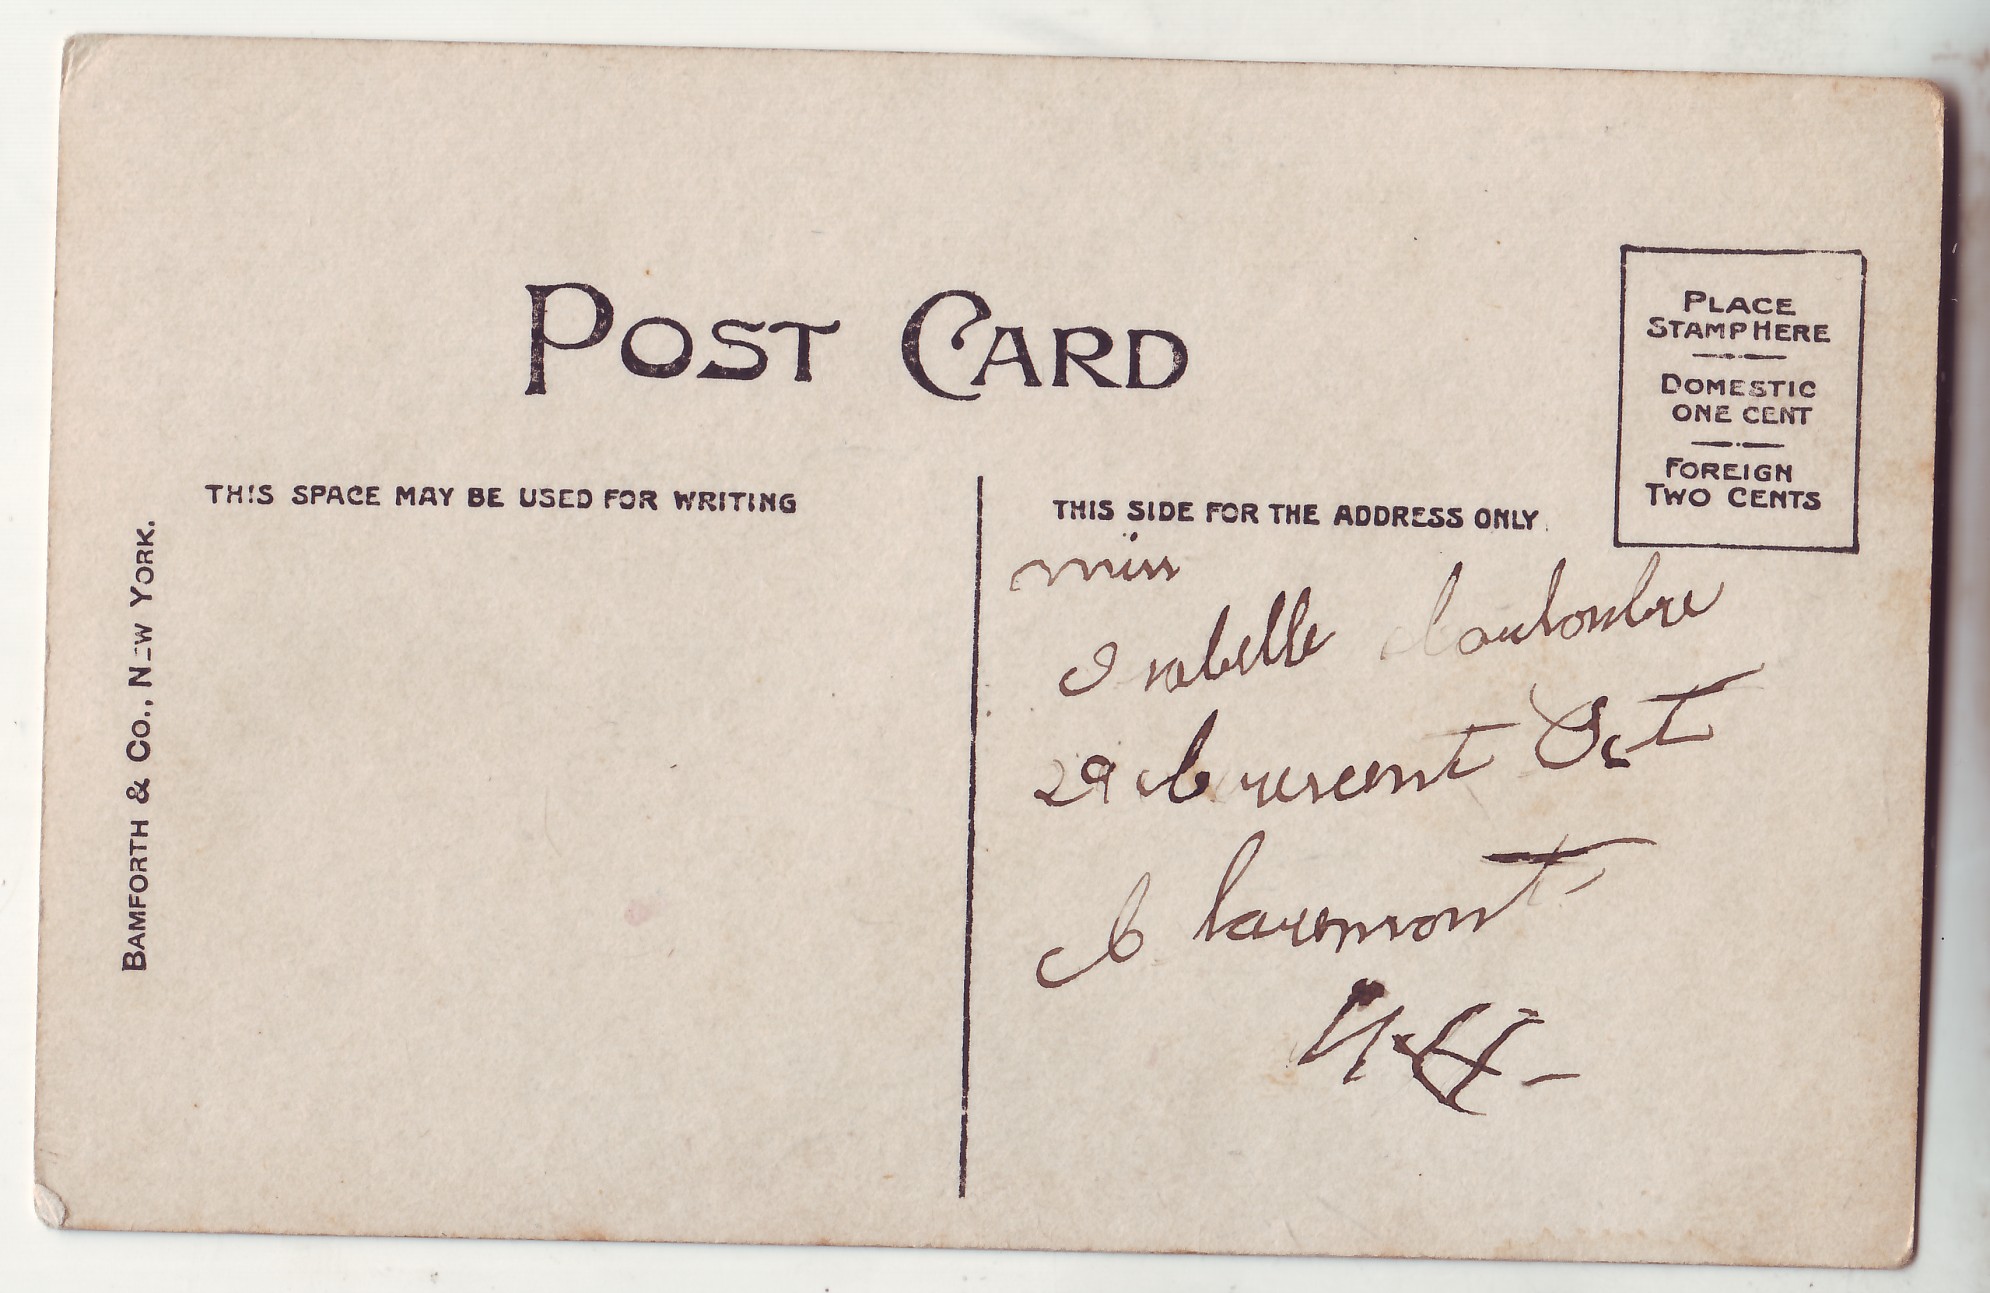 POST CARD
PLACE
STAMP HERE
DOMESTIC
ONE CENT
FOREIGN
TWO CENTS
THIS SPACE MAY BE USED FOR WRITING
THIS SIDE FOR THE ADDRESS ONLY.
BAMFORTH & CO., NEW YORK.
miss
Isabelle Coulombre
29 Crescent St
Claremont
N.H-